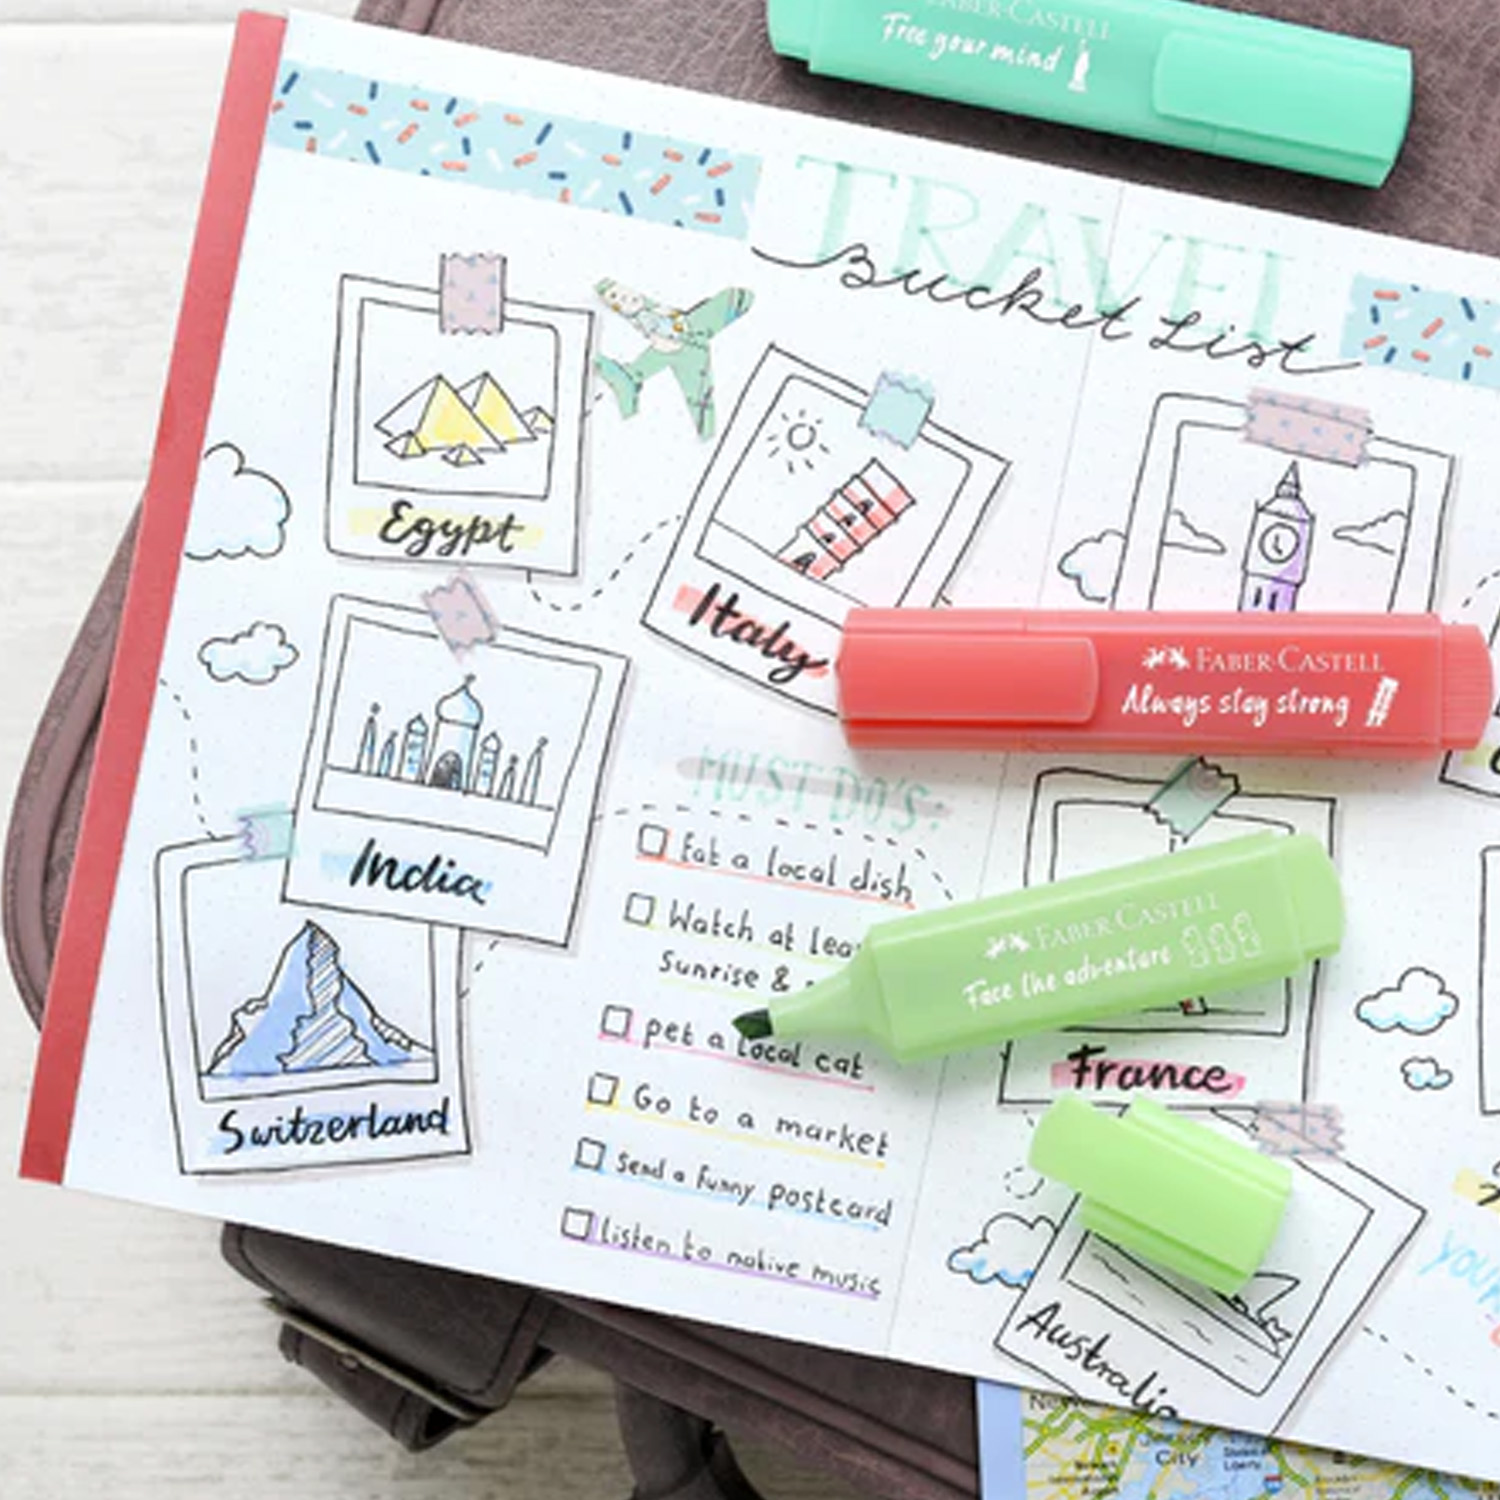 FABER-CASTELL
Free your mind
TRAVEL
Bucket List
Egypt
Italy
FABER-CASTELL
Always stay strong
India
MUST DO'S:
Eat a local dish
Watch at
Sunrise &
pet a local cat
Go to a market
Send a funny postcard
listen to native music
FABER-CASTELL
Face the adventure
France
Switzerland
Australia
City